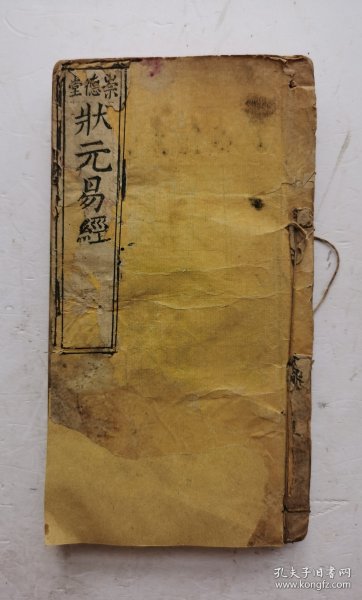 崇德堂
狀元易經
孔夫子旧书网
www.kongfz.com